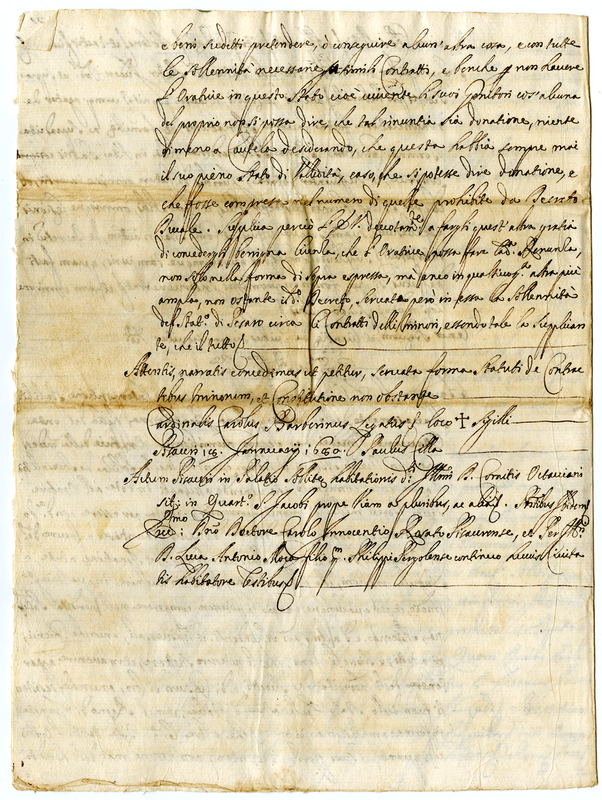 e beni sudetti pretendere, ò conseguire alcun' altra cosa, e con tutte
le sollennità necessarie a simili Contratti, e benche p non havere
l'Oratrice in questo Stato cioè vivente li suoi Genitori cos' alcuna
del proprio non si possa dire, che tal rinuntia sia donatione, niente
di meno a Cautela desiderando, che questa habbia sempre mai
il suo pieno Stato di Validità, caso, che si potesse dire donatione, e
che fosse compresa nel numero di quelle prohibite da Decreto
. Supplica perciò devotam.te a fargli quest' altra gratia
di concederli benigna licenza, che l'Oratrice possa fare la d.a Renuntia,
non solo nella forma di sopra espressa, ma anco in qualsivog.a altra più
ampla, non ostante il d.o Decreto, servata però in essa la sollennità
dello Stat.o di Pesaro circa li Contratti delli Minori, essendo tale la Supplican
te, che il tutto
Attentis narratis concedimus ut petitur, servata forma Statuti de Contrac
tibus minorum, et Constitutione non obstante
Cardinalis Carolus Barberinus Legatus loco + Sigilli
Pisauri 18 Januarij 1680. Paulus
Actum Pisauri in Palatio solitæ habitationis d.i Ill.mi D. Comitis Octaviani
siti in Quart.o S. Jacobi prope Viam a pluribus, ac alia. ibidem
D. Doctore Carolo Innocentio Pisaurense, et
D. Luca Antonio filio q.m Philippi continuo huius Civita
tis habitatore testibus